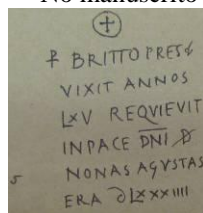 No manuscrito
⳨ BRITTO PRESꞖ
VIXIT ANNOS
LXV REQVIEVIT
IN PACE DNI D
NONAS AGVSTAS
5
ERA DLXXXIIII